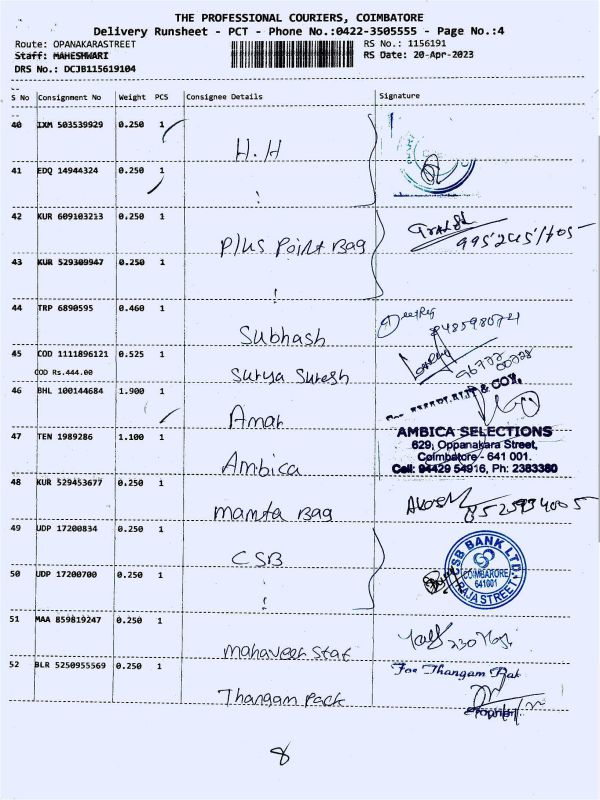 THE PROFESSIONAL COURIERS, COIMBATORE
Delivery Runsheet - PCT - Phone No.:0422-3505555 - Page No.:4
Route: OPANAKARASTREET RS No.: 1156191
Staff: MAHESHWARI RS Date: 20-Apr-2023
DRS No.: DCJB115619104
S No Consignment No Weight PCS Consignee Details Signature
40 IXM 503539929 0.250 1
H.H
41 EDQ 14944324 0.250 1
42 KUR 609103213 0.250 1
Plus Point Bag
43 KUR 529309947 0.250 1
44 TRP 6890595 0.460 1
Subhash
45 COD 1111896121 0.525 1
COD Rs.444.00
Surya Suresh
46 BHL 100144684 1.900 1
Amar
& COY.
47 TEN 1989286 1.100 1
Ambica
AMBICA SELECTIONS
629, Oppanakara Street,
Coimbatore - 641 001.
Cell: 94429 54916, Ph: 2383380
48 KUR 529453677 0.250 1
Mamta Bag
49 UDP 17200834 0.250 1
CSB
CSB BANK LTD.
COIMBATORE
641001
RAJA STREET
50 UDP 17200700 0.250 1
51 MAA 859819247 0.250 1
Mahaveer Stat
52 BLR 5250955569 0.250 1
For Thangam Pak
Thangam Pack
8